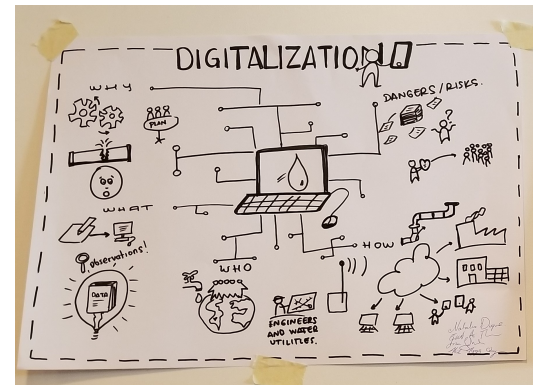 DIGITALIZATION
WHY
PLAN
DANGERS/RISKS.
?
WHAT
observations!
DATA
WHO
HOW
ENGINEERS
AND WATER
UTILITIES.